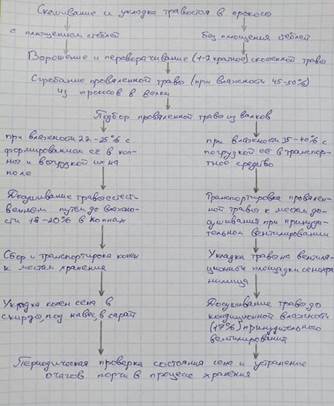 Скашивание и укладка травостоя в прокосы
с плющением стеблей
без плющения стеблей
Ворошение и переворачивание (1-2 кратное) скошенной травы
Сгребание провяленной травы (при влажности 45-50%)
из прокосов в валки
Подбор провяленной травы из валков
при влажности 22-25% с
формированием её в коп-
ны и выгрузкой их на
поле
при влажности 35-40% с
погрузкой её в транспорт-
ное средство
Досушивание травы естест-
венным путем до влажно-
сти 18-20% в копнах
Транспортировка провялен-
ной травы к местам до-
сушивания при принуди-
тельном вентилировании
Сбор и транспортировка копен
к местам хранения
Укладка травы на вентиля-
ционной площадки сенохра-
нилища
Укладка копен сена в
скирды, под навес, в сарай
Досушивание травы до
кондиционной влажности
(17%) принудительного
вентилирования
Периодическая проверка состояния сена и устранение
очагов порчи в процессе хранения